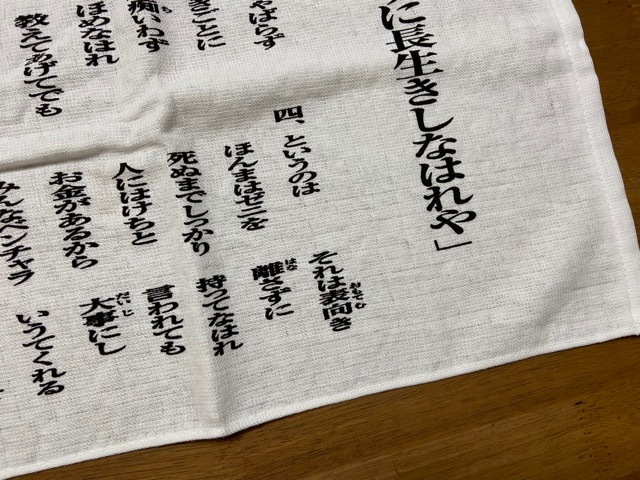 に長生きしなはれや」
ゃばらず
きごとに
痴いわず
ほめなはれ
教えてあげてでも
四、というのは　それは表向き
ほんまはゼニを　離さずに
死ぬまでしっかり　持ってなはれ
人にはけちと　言われても
お金があるから　大事にし
みんなベンチャラ　いうてくれる